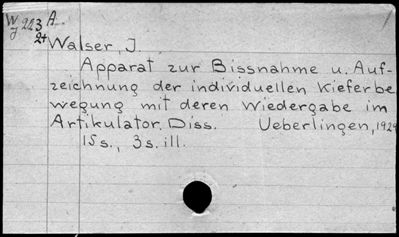 W 223 A.
J 24
Walser, J.
Apparat zur Bissnahme u. Auf-
zeichnung der individuellen Kieferbe
wegung mit deren Wiedergabe im
Artikulator. Diss. Ueberlingen, 1929
15 s., 3 s. ill.